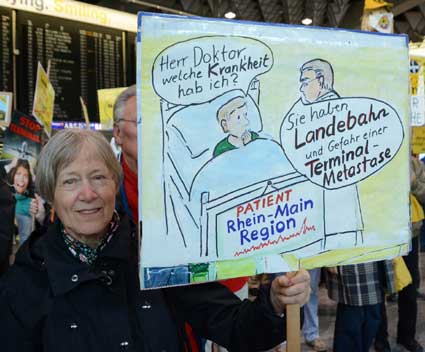 ying. Smiling.
Herr Doktor
welche Krankheit
hab ich?
Sie haben
Landebahn
und Gefahr einer
Terminal-
Metastase
PATIENT
Rhein-Main
Region
STOP